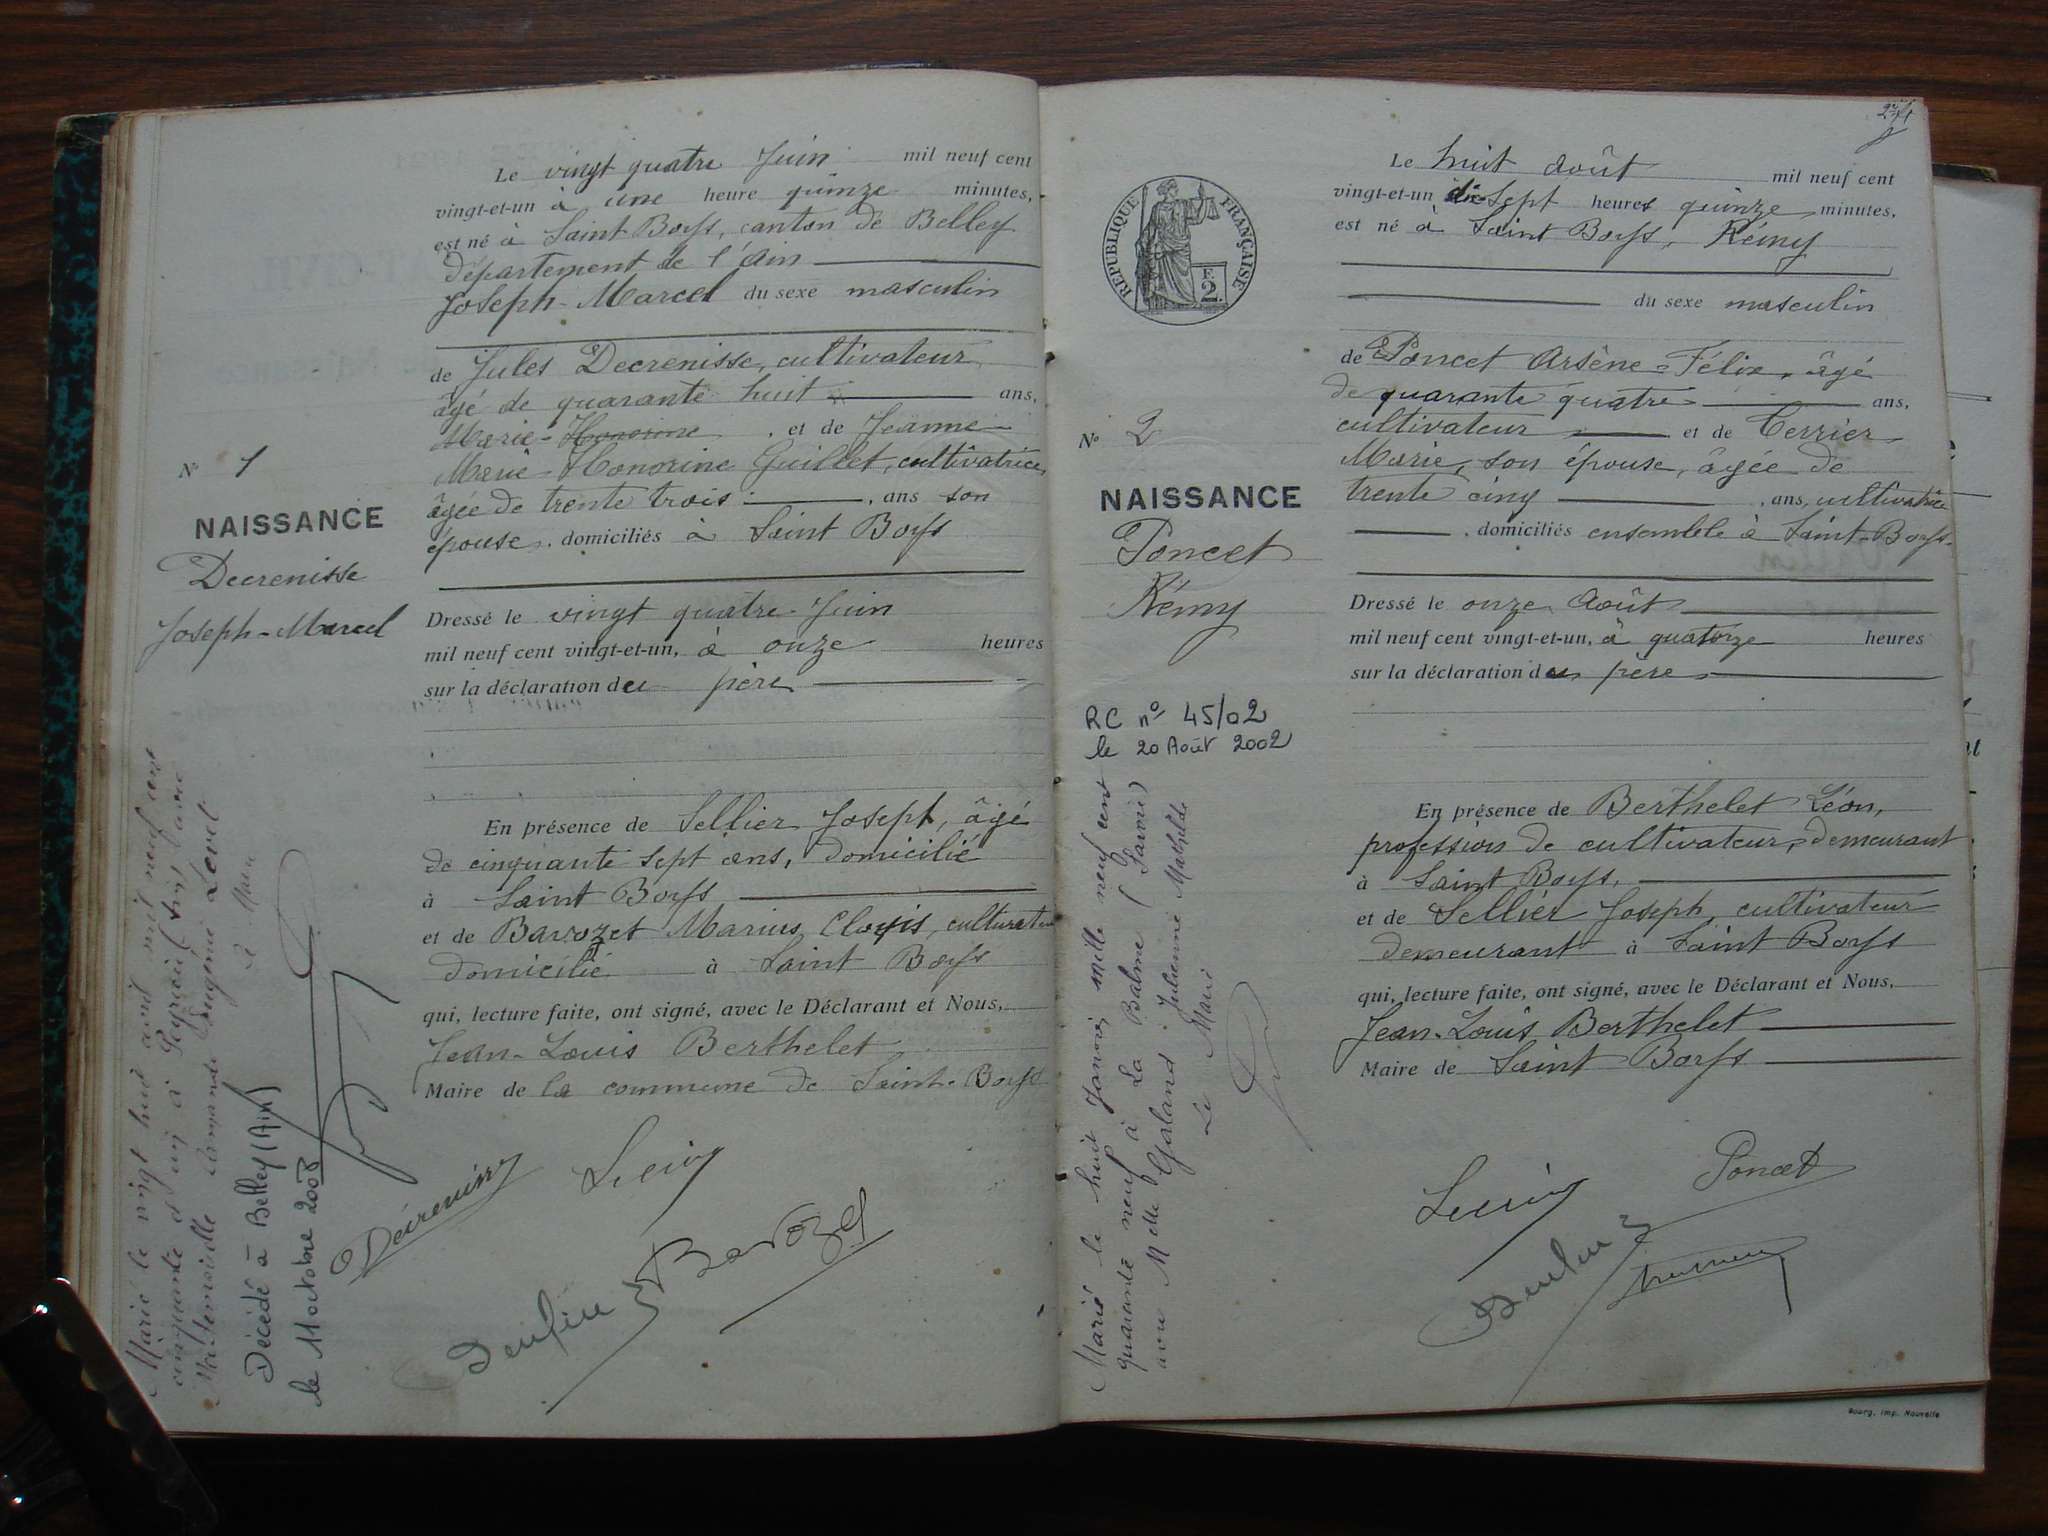 Le vingt quatre Juin mil neuf cent
vingt-et-un à une heure quinze minutes,
est né à Saint Boys, canton de Belley
département de l'Ain
Joseph-Marcel du sexe masculin
de Jules Decrenisse, cultivateur
âgé de quarante huit ans,
Marie-Honorine, et de Jeanne
Marie-Honorine Guillet, cultivatrice,
âgée de trente trois, ans son
épouse, domiciliés à Saint Boys
N° 1
NAISSANCE
Decrenisse
Joseph-Marcel
Dressé le vingt quatre Juin
mil neuf cent vingt-et-un, à onze heures
sur la déclaration du père
En présence de Sellier Joseph, âgé
de cinquante sept ans, domicilié
à Saint Boys
et de Bavozet Marius Clovis, cultivateur
domicilié à Saint Boys
qui, lecture faite, ont signé, avec le Déclarant et Nous,
Jean-Louis Berthelet
Maire de la commune de Saint-Boys
Marié le vingt huit avril mil neuf cent
cinquante et un à Peyrieu (Ain) avec
Mademoiselle Armande Eugénie
Le Maire
Décédé à Belley (Ain)
le 11 octobre 2008
Bavozet
Le huit août mil neuf cent
vingt-et-un dix-sept heures quinze minutes,
est né à Saint Boys, Rémy
du sexe masculin
RÉPUBLIQUE FRANÇAISE
F.
2
de Poncet Arsène-Félix, âgé
de quarante quatre ans,
cultivateur et de Terrier
Marie, son épouse, âgée de
trente cinq, ans, cultivatrice
, domiciliés ensemble à Saint-Boys.
N° 2
NAISSANCE
Poncet
Rémy
RC n° 45/02
le 20 Août 2002
Dressé le onze Août
mil neuf cent vingt-et-un, à quatorze heures
sur la déclaration du père
En présence de Berthelet Léon,
profession de cultivateur, demeurant
à Saint Boys,
et de Sellier Joseph, cultivateur
demeurant à Saint Boys
qui, lecture faite, ont signé, avec le Déclarant et Nous,
Jean-Louis Berthelet
Maire de Saint Boys
Marié le huit Janvier mille neuf cent
quarante neuf à La Balme (Savoie)
avec Melle Galand Julienne Mathilde
Le Maire
Poncet
Bourg, Imp. Nouvelle